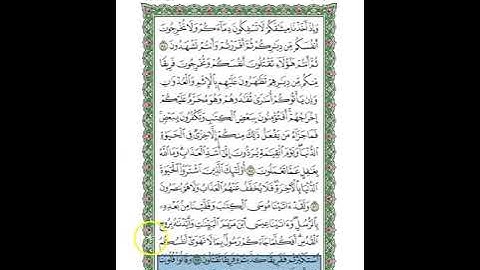 وَإِذْ أَخَذْنَا مِيثَٰقَكُمْ لَا تَسْفِكُونَ دِمَآءَكُمْ وَلَا تُخْرِجُونَ
أَنفُسَكُم مِّن دِيَٰرِكُمْ ثُمَّ أَقْرَرْتُمْ وَأَنتُمْ تَشْهَدُونَ ٨٤
ثُمَّ أَنتُمْ هَٰٓؤُلَآءِ تَقْتُلُونَ أَنفُسَكُمْ وَتُخْرِجُونَ فَرِيقًا
مِّنكُم مِّن دِيَٰرِهِمْ تَظَٰهَرُونَ عَلَيْهِم بِٱلْإِثْمِ وَٱلْعُدْوَٰنِ
وَإِن يَأْتُوكُمْ أُسَٰرَىٰ تُفَٰدُوهُمْ وَهُوَ مُحَرَّمٌ عَلَيْكُمْ
إِخْرَاجُهُمْ أَفَتُؤْمِنُونَ بِبَعْضِ ٱلْكِتَٰبِ وَتَكْفُرُونَ بِبَعْضٍ
فَمَا جَزَآءُ مَن يَفْعَلُ ذَٰلِكَ مِنكُمْ إِلَّا خِزْىٌ فِى ٱلْحَيَوٰةِ
ٱلدُّنْيَا وَيَوْمَ ٱلْقِيَٰمَةِ يُرَدُّونَ إِلَىٰٓ أَشَدِّ ٱلْعَذَابِ وَمَا ٱللَّهُ
بِغَٰفِلٍ عَمَّا تَعْمَلُونَ ٨٥ أُو۟لَٰٓئِكَ ٱلَّذِينَ ٱشْتَرَوُا۟ ٱلْحَيَوٰةَ
ٱلدُّنْيَا بِٱلْءَاخِرَةِ فَلَا يُخَفَّفُ عَنْهُمُ ٱلْعَذَابُ وَلَا هُمْ يُنصَرُونَ
٨٦ وَلَقَدْ ءَاتَيْنَا مُوسَى ٱلْكِتَٰبَ وَقَفَّيْنَا مِنۢ بَعْدِهِۦ
بِٱلرُّسُلِ وَءَاتَيْنَا عِيسَى ٱبْنَ مَرْيَمَ ٱلْبَيِّنَٰتِ وَأَيَّدْنَٰهُ بِرُوحِ
ٱلْقُدُسِ أَفَكُلَّمَا جَآءَكُمْ رَسُولٌۢ بِمَا لَا تَهْوَىٰٓ أَنفُسُكُمُ
ٱسْتَكْبَرْتُمْ فَفَرِيقًا كَذَّبْتُمْ وَفَرِيقًا تَقْتُلُونَ ٨٧ وَقَالُوا۟ قُلُوبُنَا